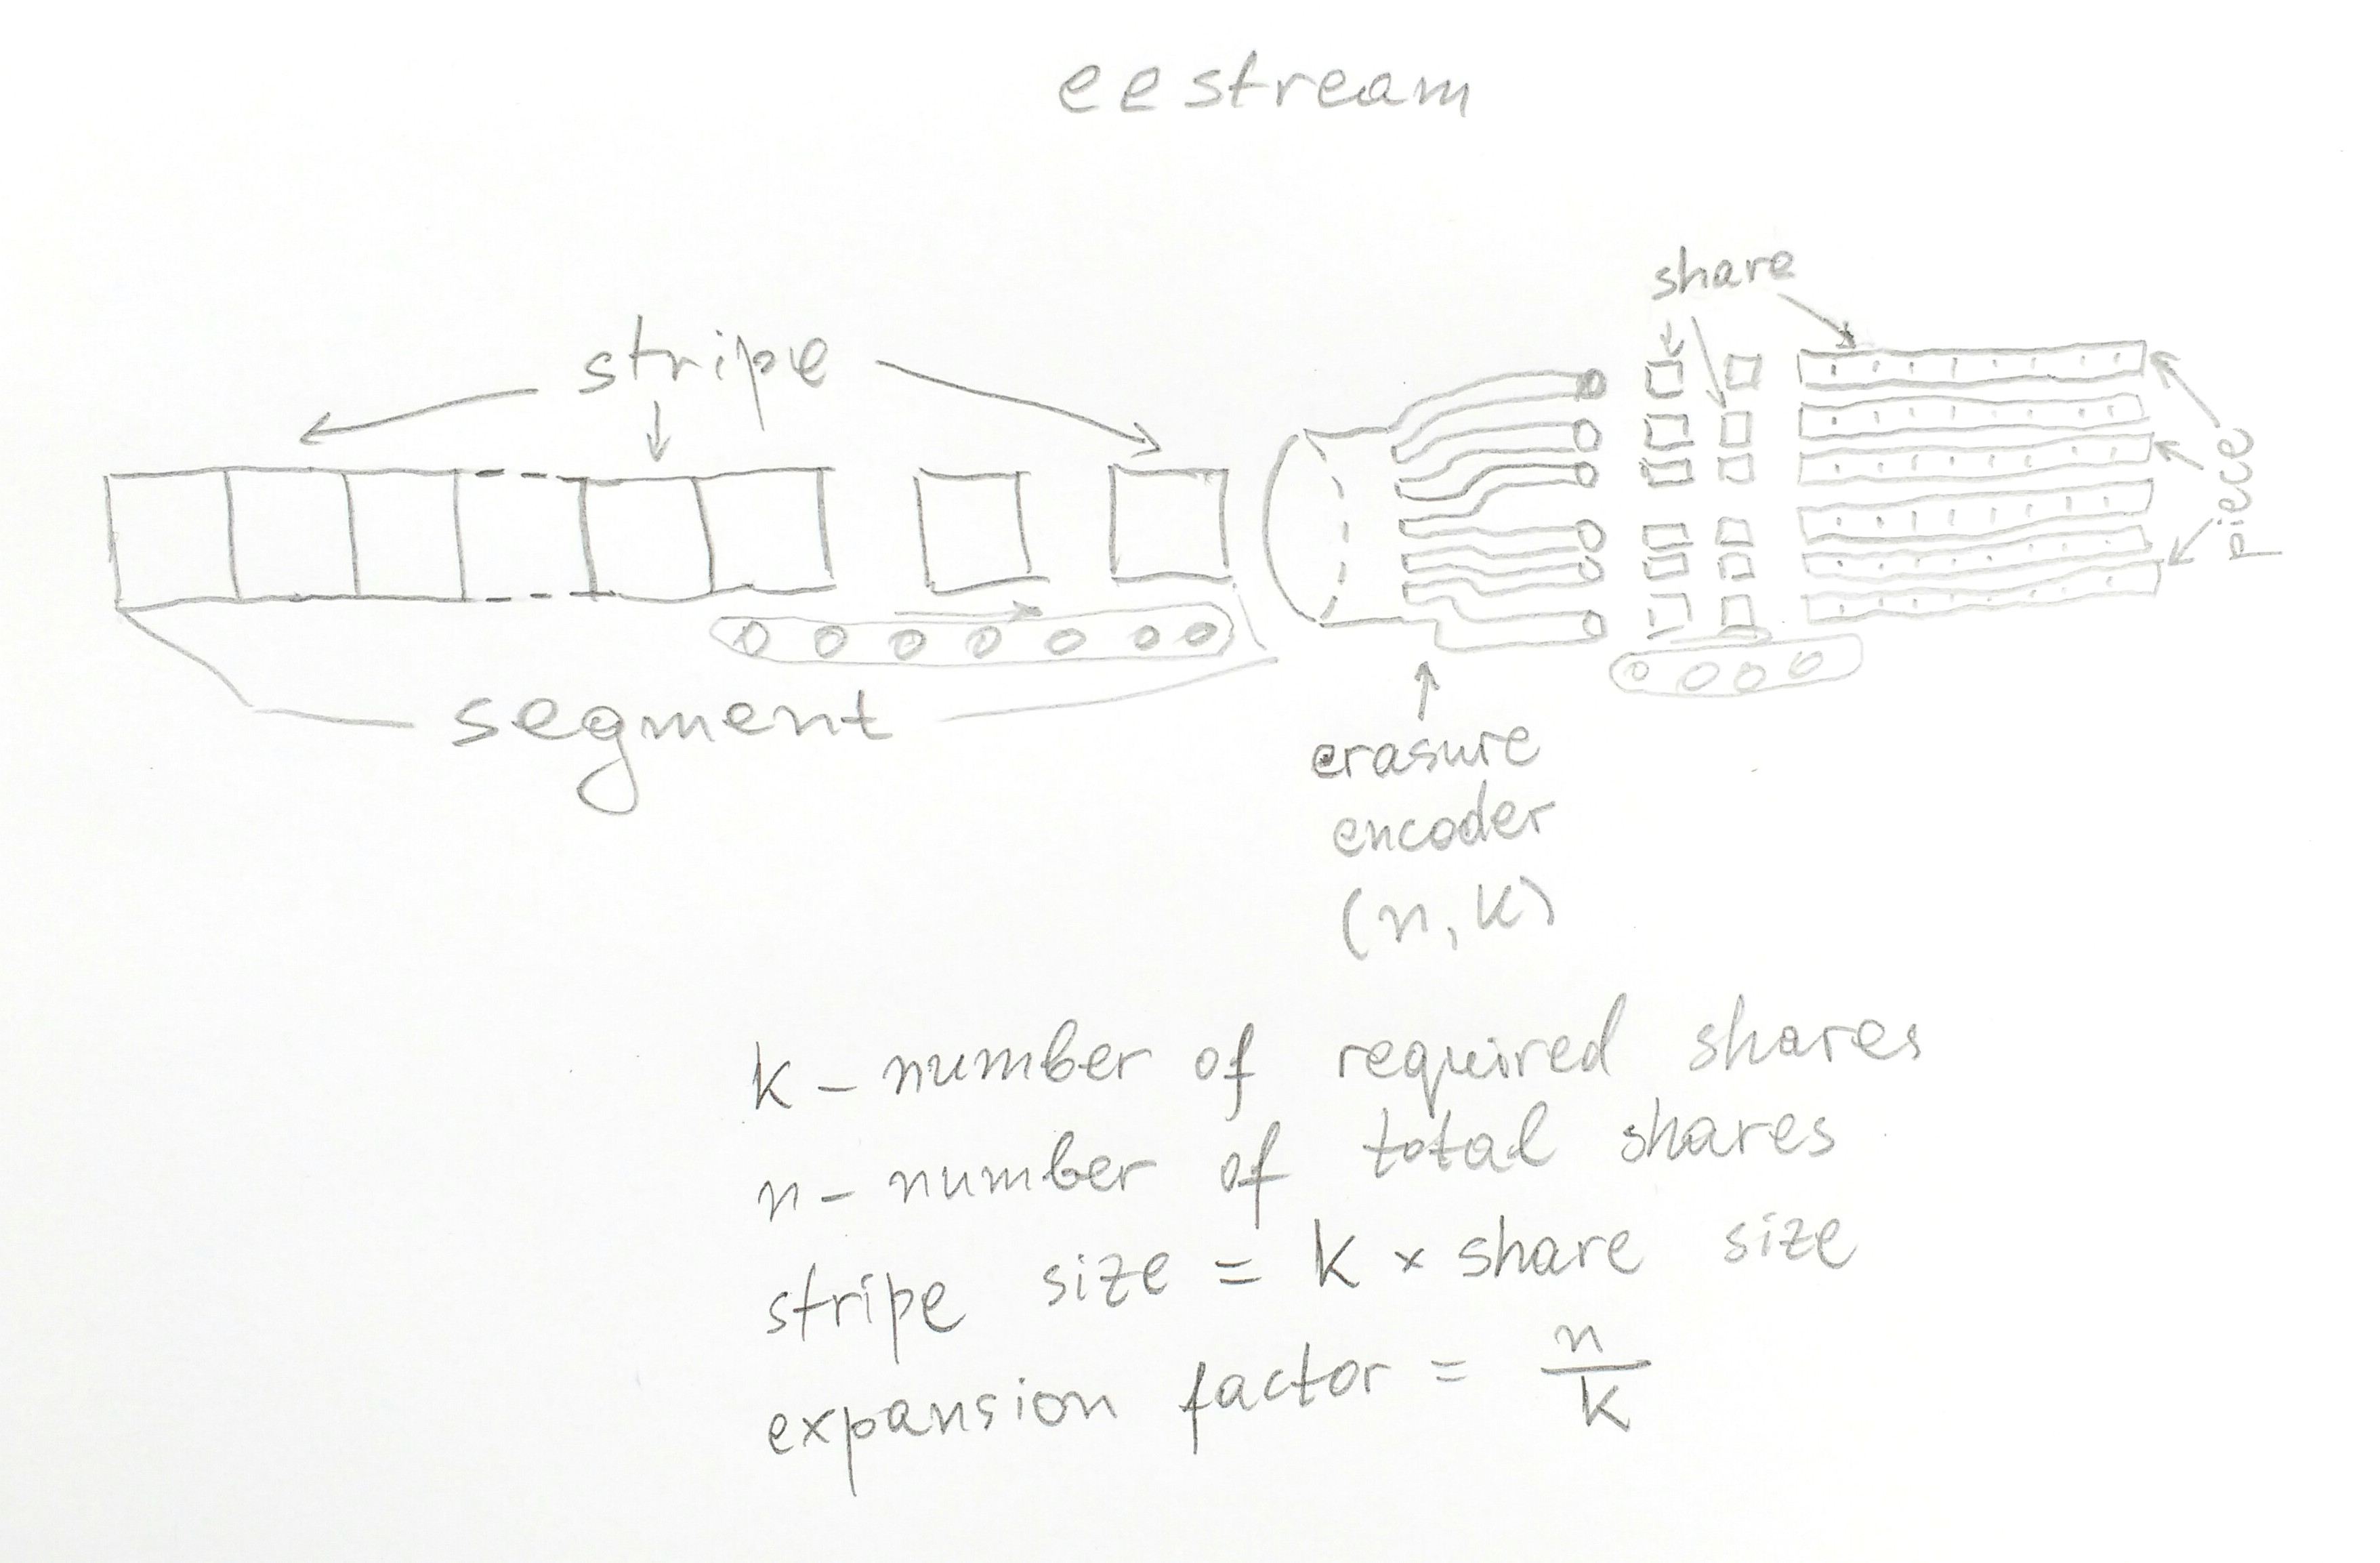 eestream
share
stripe
piece
segment
erasure
encoder
(n, k)
k – number of required shares
n – number of total shares
stripe size = k × share size
expansion factor = n/k